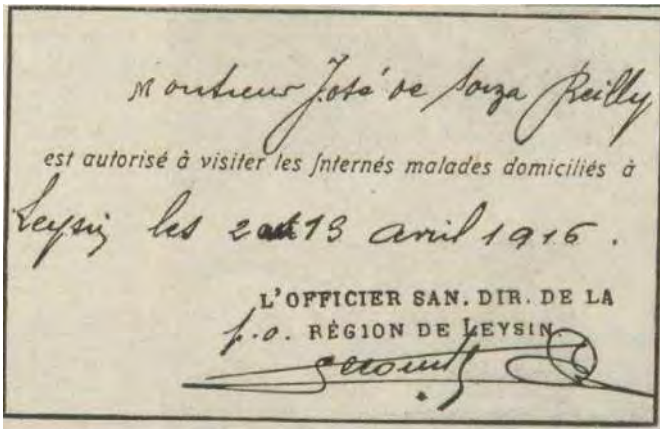 Monsieur José de Souza Reilly
est autorisé à visiter les Internés malades domiciliés à
Leysin les 2 et 13 avril 1916.
L'OFFICIER SAN. DIR. DE LA
p.o. RÉGION DE LEYSIN